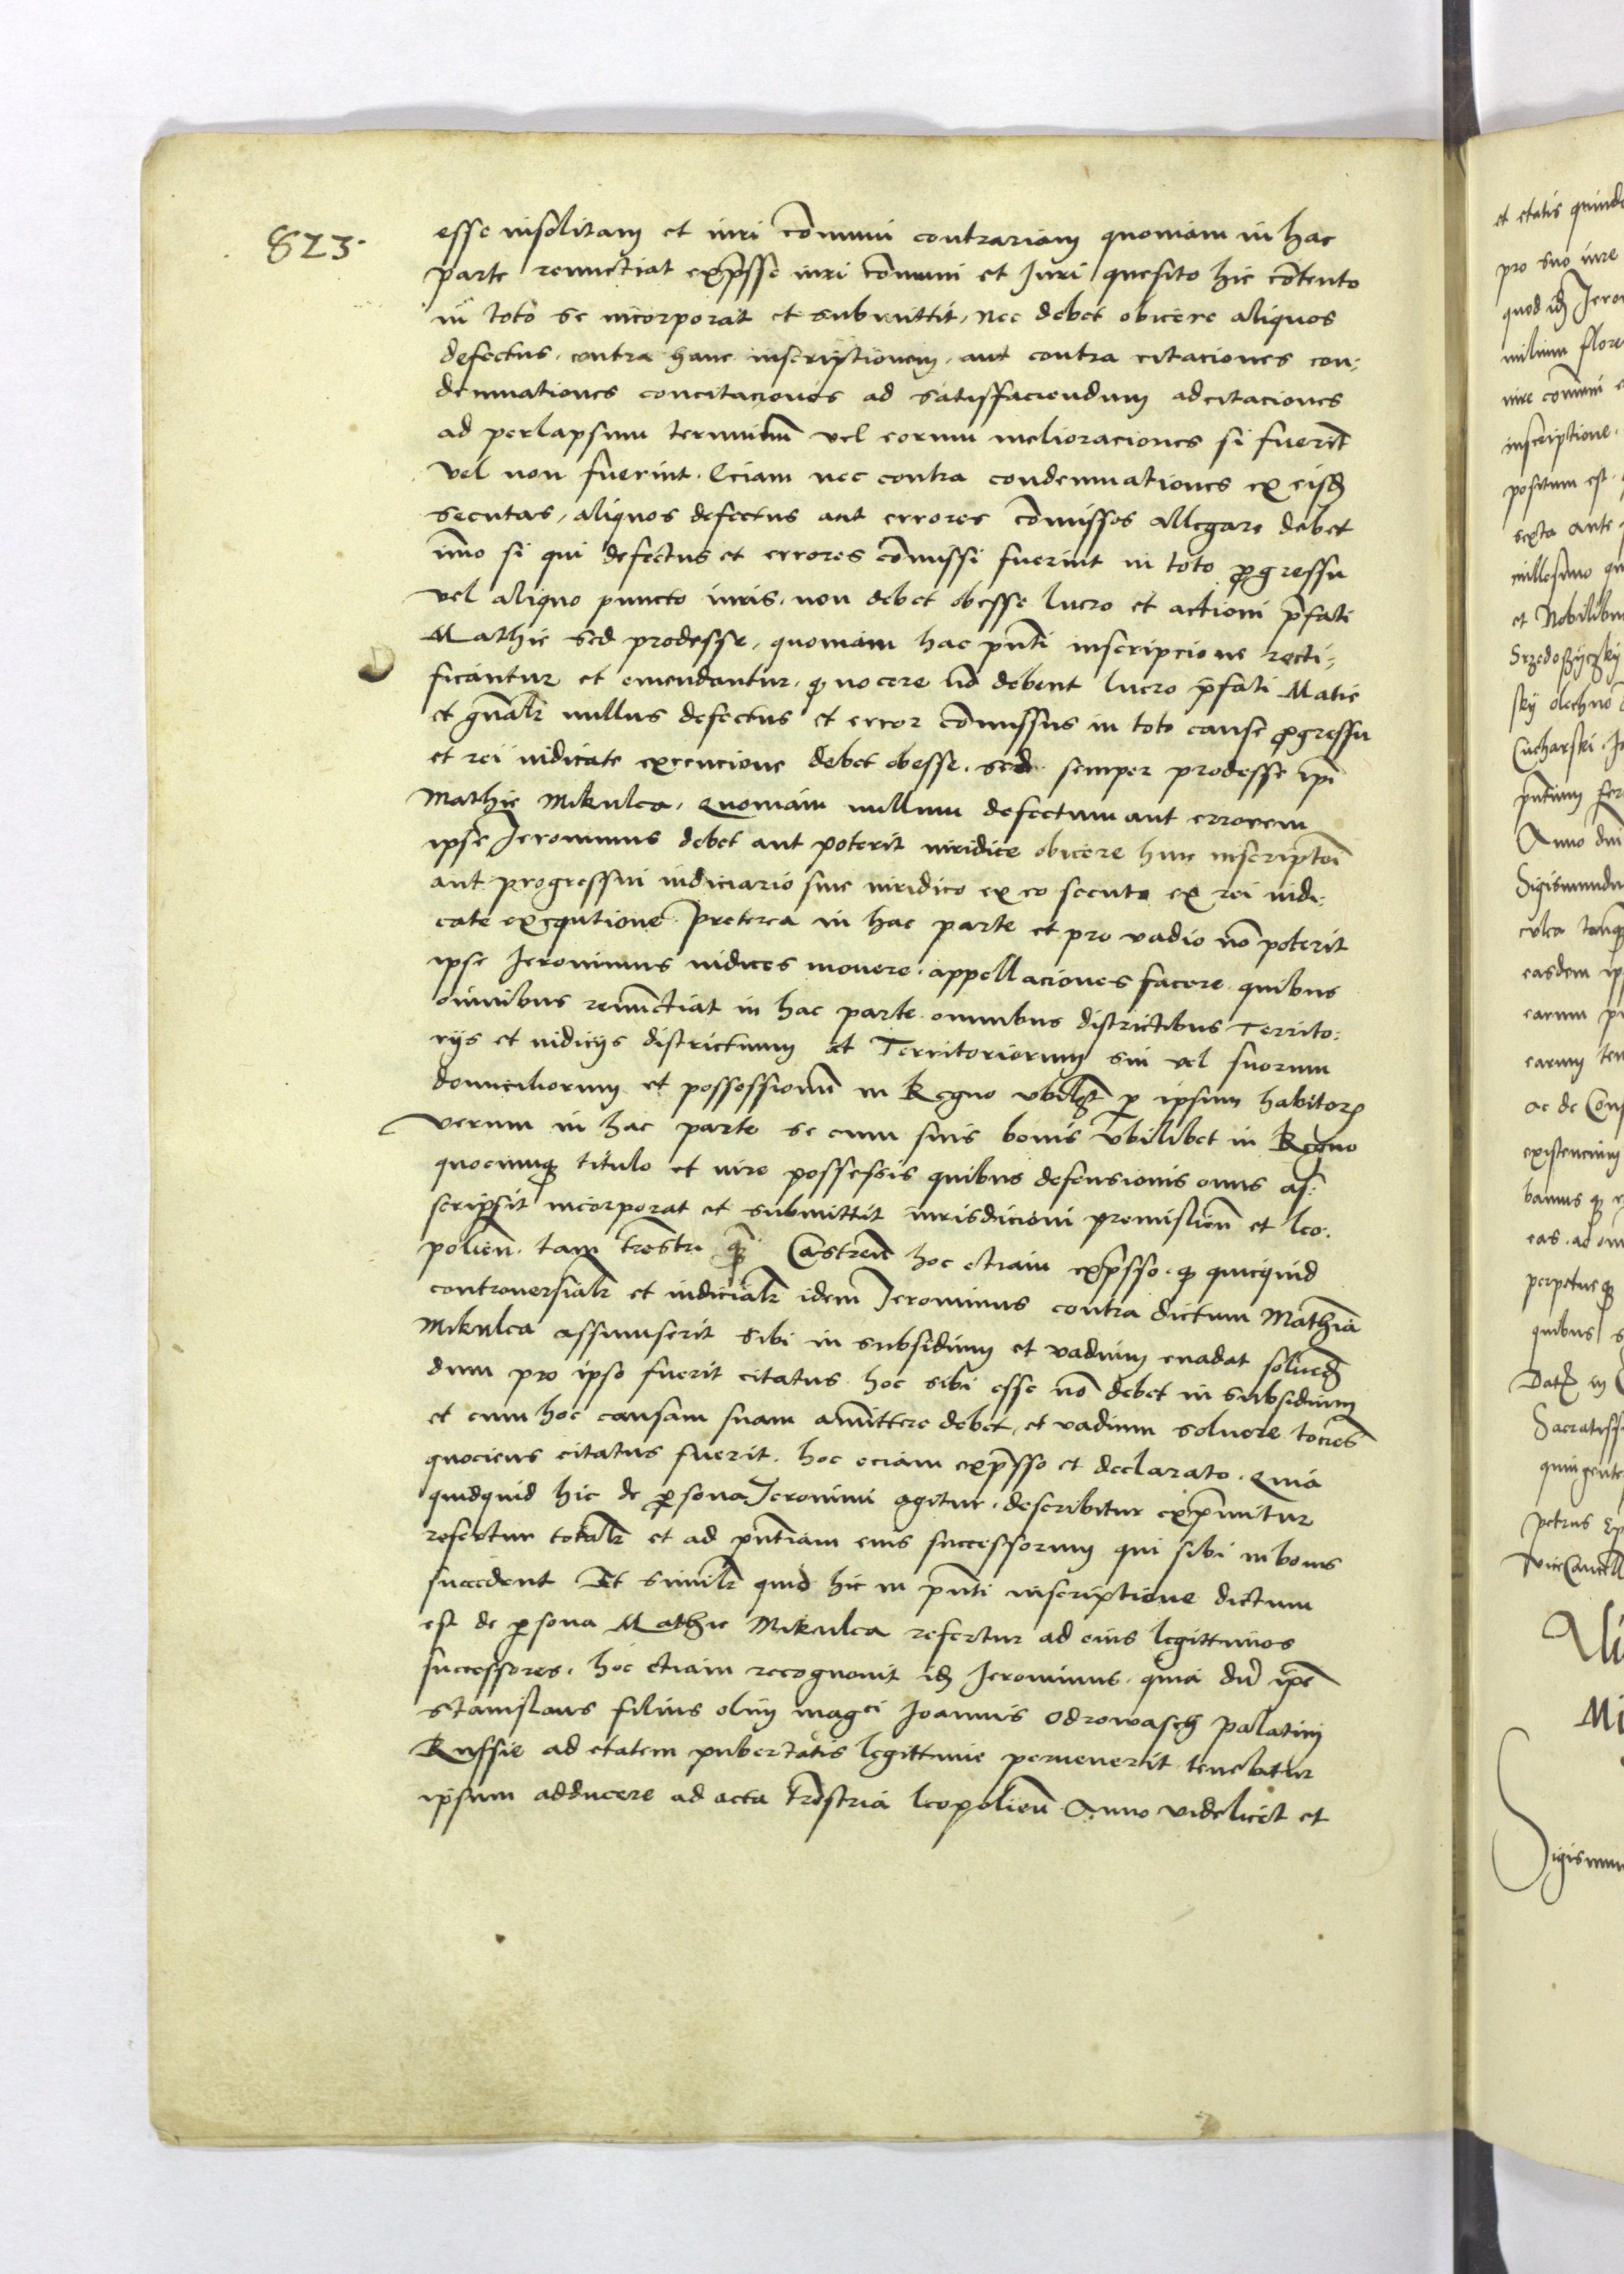 823.
esse insolitam et iuri cõmuni contrariam quoniam in hac
parte renunctiat exp̃sse iuri cõmuni et Iuri quesito hic cõtento
in toto se incorporat et submittit, nec debet obicere aliquos
defectus contra hanc inscriptionem, aut contra citaciones con-
demnationes concitaciones ad satisffaciendum adcitaciones
ad perlapsum terminum vel eorum melioraciones si fuerit
vel non fuerint. Eciam nec contra condemnationes ex eisd
secutas, aliquos defectus aut errores cõmissos allegare debet
im̃o si qui defectus et errores cõmissi fuerint in toto ꝓgressu
vel aliquo puncto iuris, non debet obesse lucro et actioni p̃fati
Mathie sed prodesse, quoniam hac pñti inscripcione recti-
ficantur et emendantur, ꝙ nocere nõ debent lucro p̃fati Matie
et gñalr nullus defectus et error cõmissus in toto cause ꝓgressu
et rei iudicate execucione debet obesse, sed semper prodesse ip̃i
Mathie Mikulca, Quoniam nullum defectum aut errorem
ipse Jeronimus debet aut poterit iuridice obicere huic inscriptõi
aut progressui iudiciario siue iuridico ex eo secuto ex rei iudi-
cate exeqутione. Preterea in hac parte et pro vadio nõ poterit
ipse Jeronimus iudices mouere, appellaciones facere quibus
omnibus renunctiat in hac parte omnibus districtibus Territo-
rijs et iudicijs districtuum et Territoriorum sui vel suorum
domiciliorum et possessionũ in Regno vbilꝫ ꝑ ipsum habitoꝝ
verum in hac parte se cum suis bonis vbilibet in Regno
quocumꝗ titulo et iure possessis quibus defensionis onus as-
scripsit incorporat et submittit iurisdicioni premislieñ et leo-
polieñ. tam tr̃estri ꝗ̃ Castreñ hoc etiam exp̃sso, ꝙ quicquid
controuersialr et iudicialr idem Jeronimus contra dictum Mathiã
Mikulca assumserit sibi in subsidium et vadium euadat soluend
dum pro ipso fuerit citatus hoc sibi esse nõ debet in subsidium
et cum hoc causam suam amittere debet, et vadium soluere tocies
quociens citatus fuerit. hoc eciam exp̃sso et declarato, Quia
quidquid hic de ꝑsona Jeronimi agitur, describitur exp̃mitur
refertur totalr et ad pñtiam eius successorum qui sibi in bonis
succedent Et similr quid hic in pñti inscriptione dictum
est de ꝑsona Mathie Mikulca refertur ad eius legittimos
successores. hoc etiam recognouit id Jeronimus, quia dũ ip̃e
Stanislaus filius olim magci Joannis Odrowasch palatini
Russie ad etatem pubertatis legittime peruenerit tenebitur
ipsum adducere ad acta tr̃estria leopolieñ. Anno videlicet et
et etatis
pro suo iure
quod id
inscriptione
positum est
sexta ante
et Nobilibus
Cucharski
Anno dni
casdem
earum
existencium
perpetueꝗ
quibus
petrus
Sigismun